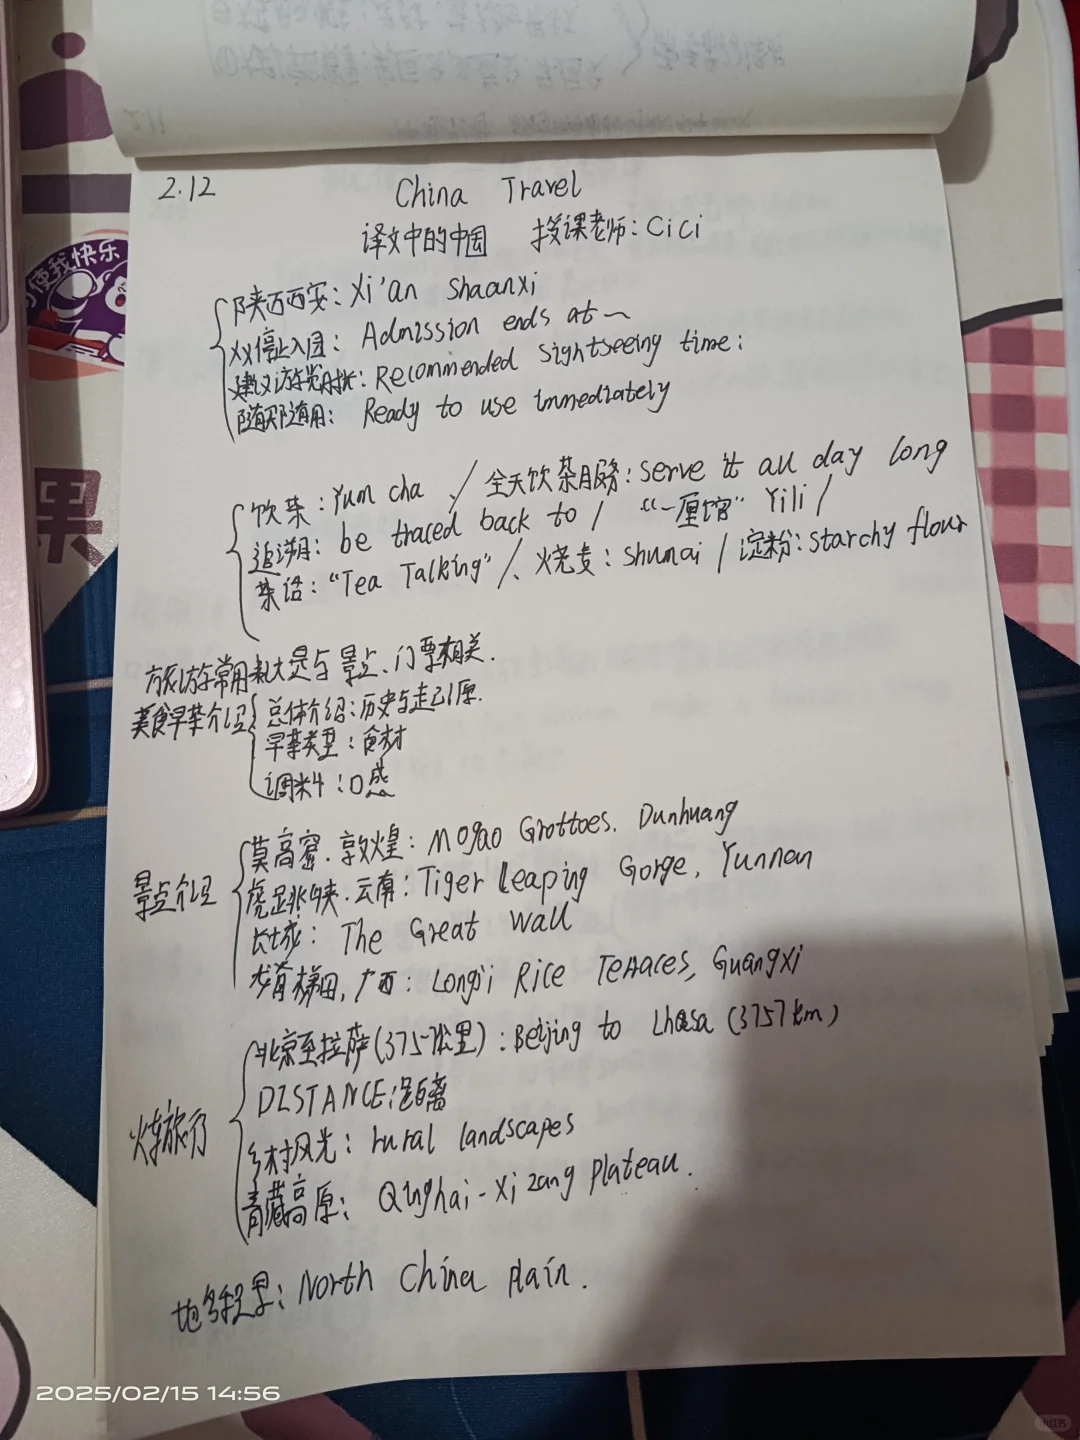 2.12
China Travel
译文中的中国 授课老师：CiCi
陕西西安：Xi'an Shaanxi
XX停止入园：Admission ends at～
建议游览时长：Recommended Sightseeing time：
随买随用：Ready to use immediately
饮茶：Yum cha / 全天饮茶服务：serve it all day long
追溯：be traced back to / “一厘馆” Yili /
茶话：“Tea Talking” / 烧麦：shumai / 淀粉：starchy flour
旅游常用 景点、门票相关.
美食早茶介绍
总体介绍：历史与起源.
早茶类型：食材
调料：口感
景点介绍
莫高窟.敦煌：Mogao Grottoes. Dunhuang
虎跳峡.云南：Tiger Leaping Gorge, Yunnan
长城：The Great Wall
龙脊梯田,广西：Longji Rice Terraces, Guangxi
火车旅行
北京至拉萨(3757公里)：Beijing to Lhasa (3757km)
DISTANCE：距离
乡村风光：rural landscapes
青藏高原：Qinghai-Xizang Plateau.
North China Plain.
使我快乐
果
2025/02/15 14:56
小红书